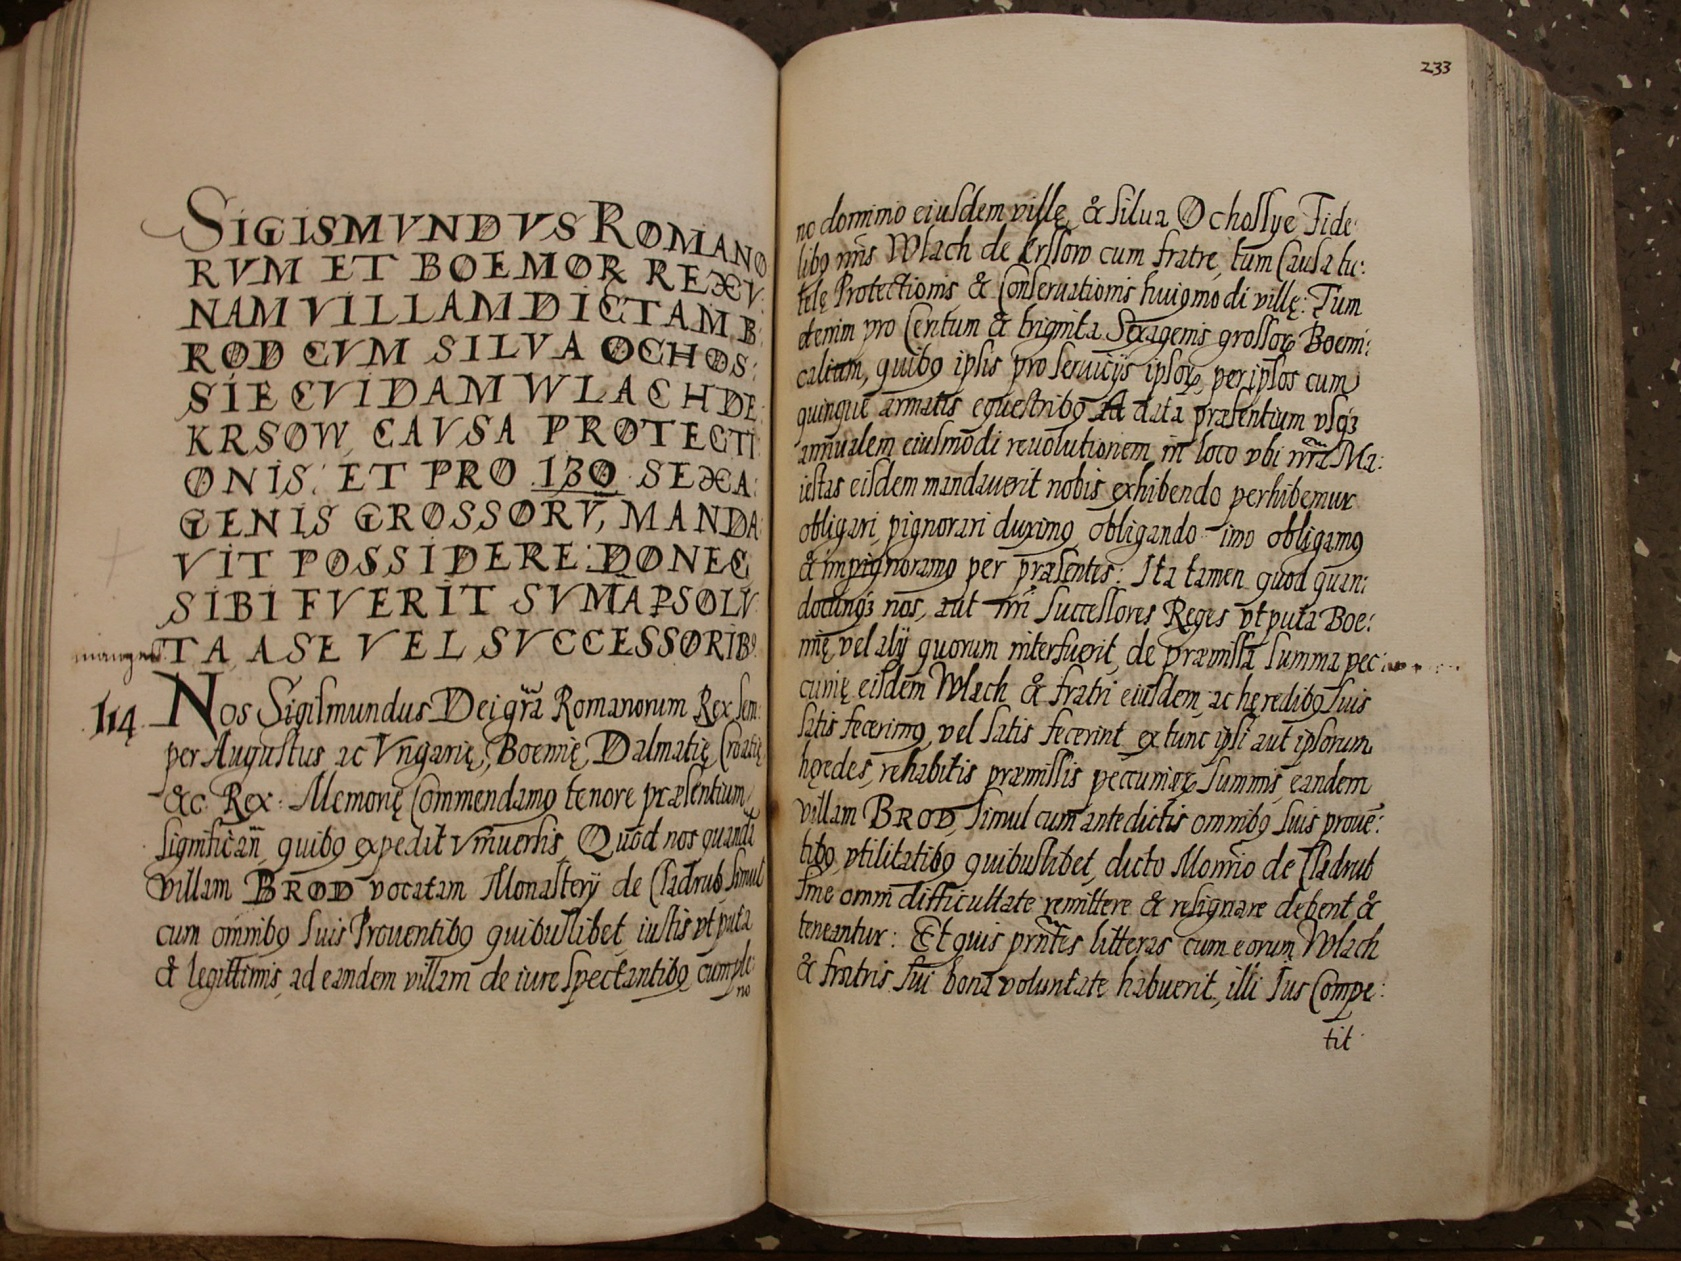 SIGISMVNDVS ROMANO
RVM ET BOEMOR REX V:
NAM VILLAM DICTAM B:
ROD CVM SILVA OCHOS:
SIE CVIDAM WLACH DE
KRSOW CAVSA PROTECTI
ONIS. ET PRO 130 SEXA:
GENIS GROSSORV̄, MANDA
VIT POSSIDERE DONEC
SIBI FVERIT SVM̄A PSOLV
TA A SE VEL SVCCESSORIB9
114. Nos Sigismundus Dei gr̄a Romanorum Rex sem:
per Augustus ac Vngarię, Boemię, Dalmatię, Croatię
&c Rex: Memorię Commendam9 tenore præsentium
significan̄, quib9 expedit vniuersis, Quod nos quandā
villam BROD vocatam Monasterij de Cladrub, simul
cum omnib9 suis Prouentib9 quibuslibet, iustis vt puta
& legittimis, ad eandem villam de iure spectantib9 cum ple:
no
233
no dominio eiusdem villę, & silua Ochossye Fide
lib9 nr̄is Wlach de Krssow cum fratre, tum Causa tu:
telę Protectionis & Conseruationis huigmodi villę: Tum
etenim pro Centum & triginta Sexagenis grossoꝝ Boemi:
calium, quib9 ipsis pro seruicijs ipsoꝝ, per ipsos cum
quinque armatis equestrib9 A data præsentium vsqꝫ
annualem eiusmodi reuolutionem in loco vbi nr̄a Ma:
iestas eisdem mandauerit nobis exhibendo perhibemur
obligari, pignorari duxim9 obligando imo obligam9
& impignoram9 per præsentes: Ita tamen quod quan:
docunqꝫ nos, aut nr̄i Successores Reges vt puta Boe:
mię, vel alij quorum interfuerit, de præmissa summa pec:
cunię eisdem Wlach & fratri eiusdem, ac hęredib9 suis
satis fecerim9, vel satis fecerint, ex tunc ipsi aut ipsorum
hęredes, rehabitis præmissis peccuniaꝝ summis, eandem
villam BROD, simul cum antedictis omnib9 suis prouē:
tib9, vtilitatib9 quibuslibet, dicto Monr̄io de Cladrub
sine omni difficultate remittere & resignare debent &
teneantur: Et quis pr̄ntes litteras cum eorum Wlach
& fratris sui bona voluntate habuerit, illi Ius Compe:
tit